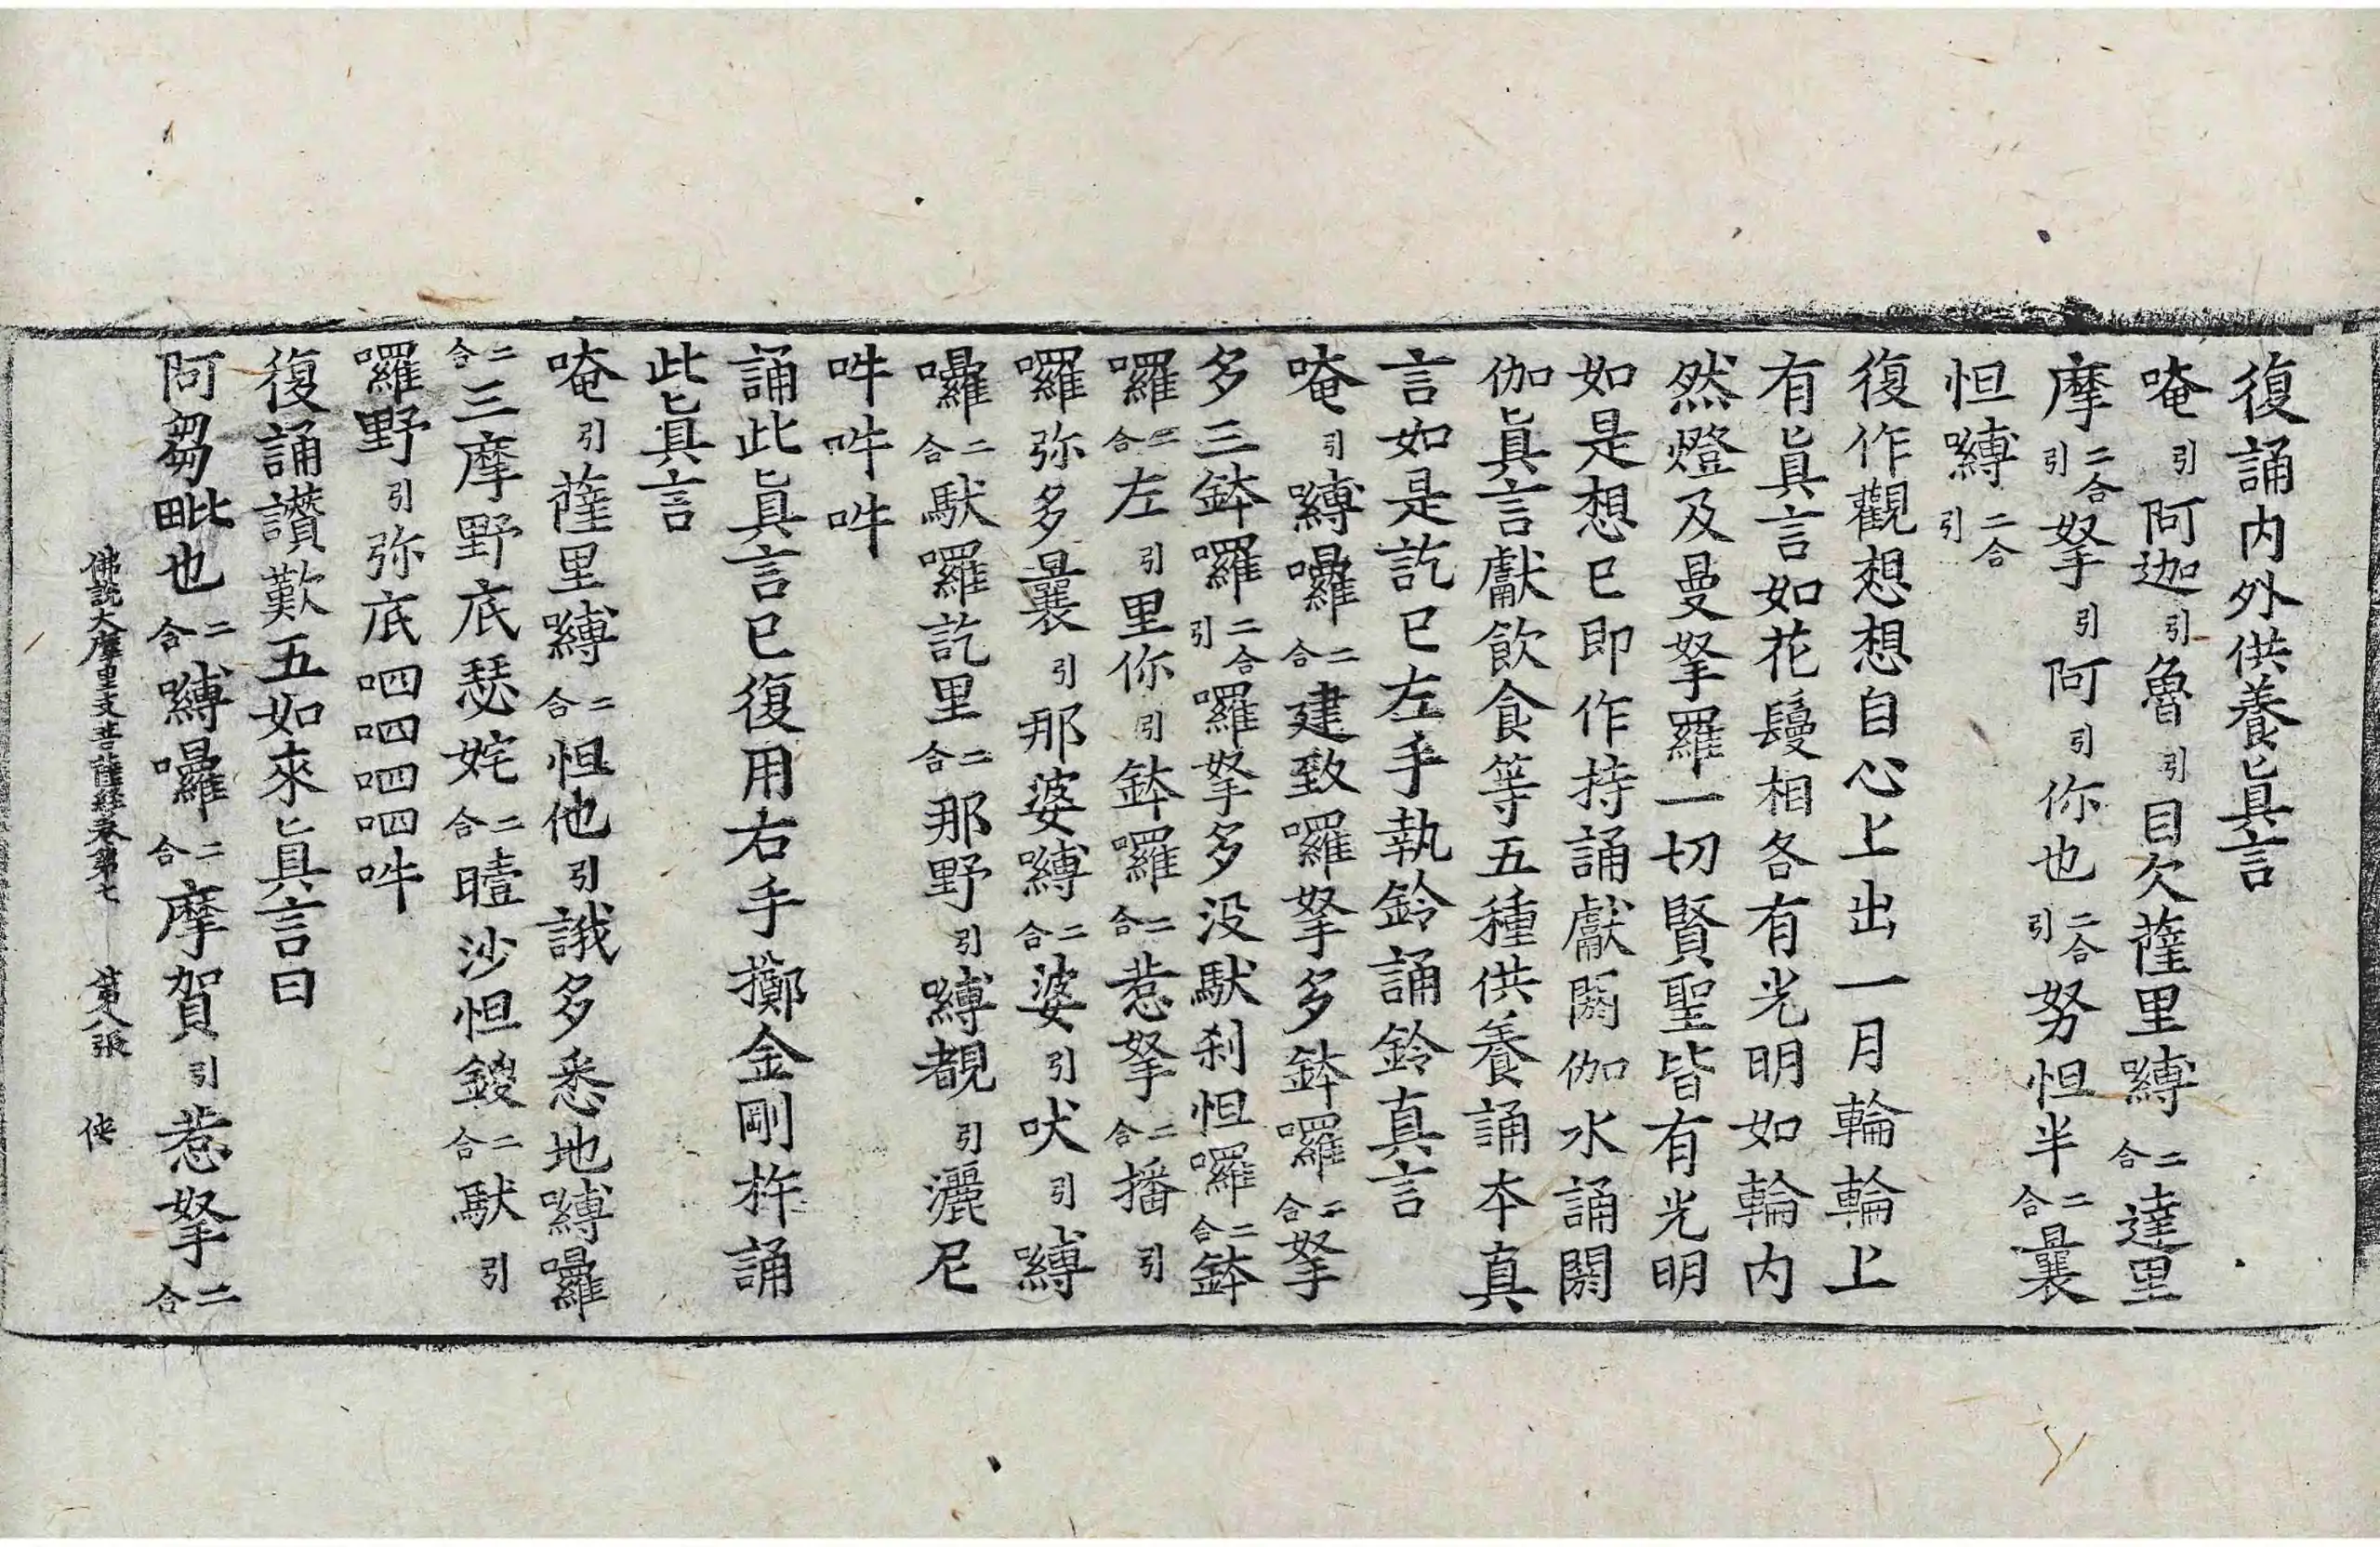 復誦内外供養眞言
唵引阿迦引魯引目欠薩里嚩二合達里
摩二合引拏引阿引你也二合引努怛半二合曩
怛嚩二合引
復作觀想想自心上出一月輪輪上
有眞言如花鬘相各有光明如輪内
然燈及曼拏羅一切賢聖皆有光明
如是想已即作持誦獻閼伽水誦閼
伽眞言獻飲食等五種供養誦本真
言如是訖已左手執鈴誦鈴真言
唵引嚩囉二合建致囉拏多鉢囉二合拏
多三鉢囉二合引囉拏多没馱刹怛囉二合鉢
囉二合左引里你引鉢囉二合惹拏二合播引
囉弥多曩引那婆嚩二合婆引吠引嚩
囉二合馱囉訖里二合那野引嚩覩引灑尼
吽吽吽
誦此眞言已復用右手擲金剛杵誦
此眞言
唵引薩里嚩二合怛他引誐多悉地嚩囉
二合三摩野底瑟姹二合曀沙怛鑁二合馱引
囉野引弥底呬呬呬呬吽
復誦讚歎五如來眞言曰
阿芻毗也二合嚩囉二合摩賀引惹拏二合
佛説大摩里支菩薩經卷第七 第八張 侠